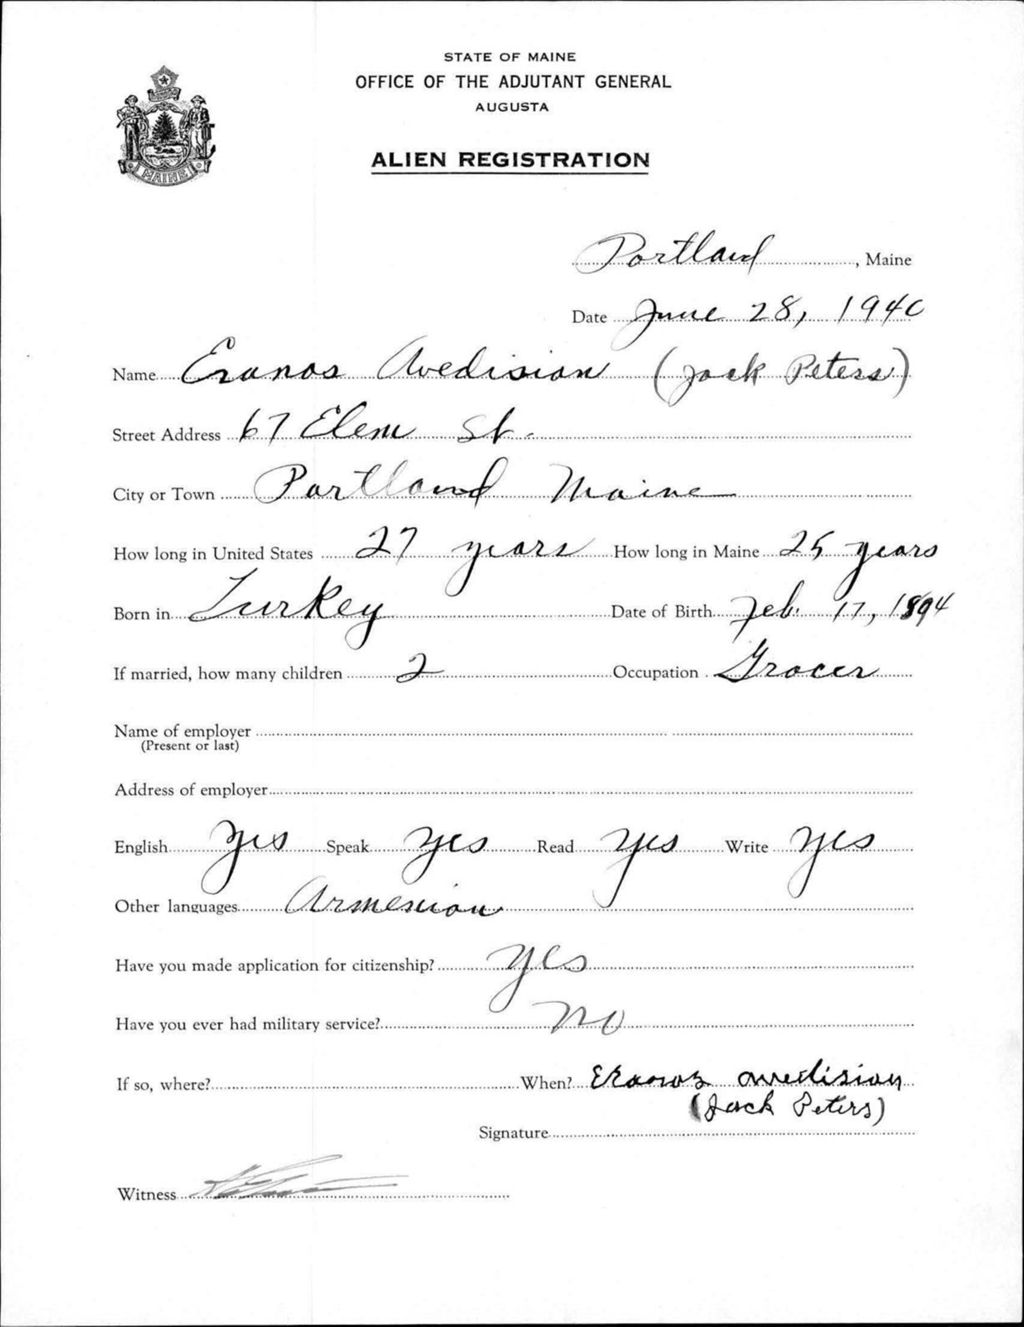 STATE OF MAINE
OFFICE OF THE ADJUTANT GENERAL
AUGUSTA
ALIEN REGISTRATION
MAINE
Portland, Maine
Date June 28, 1940
Name Eranos Avedisian (Jack Peters)
Street Address 67 Elem St.
City or Town Portland Maine
How long in United States 27 years How long in Maine 25 years
Born in Turkey Date of Birth Feb. 17, 1894
If married, how many children 2 Occupation Grocer
Name of employer
(Present or last)
Address of employer
English yes Speak yes Read yes Write yes
Other languages Armenian
Have you made application for citizenship? yes
Have you ever had military service? no
If so, where? When? Eranos Avedisian
(Jack Peters)
Signature
Witness